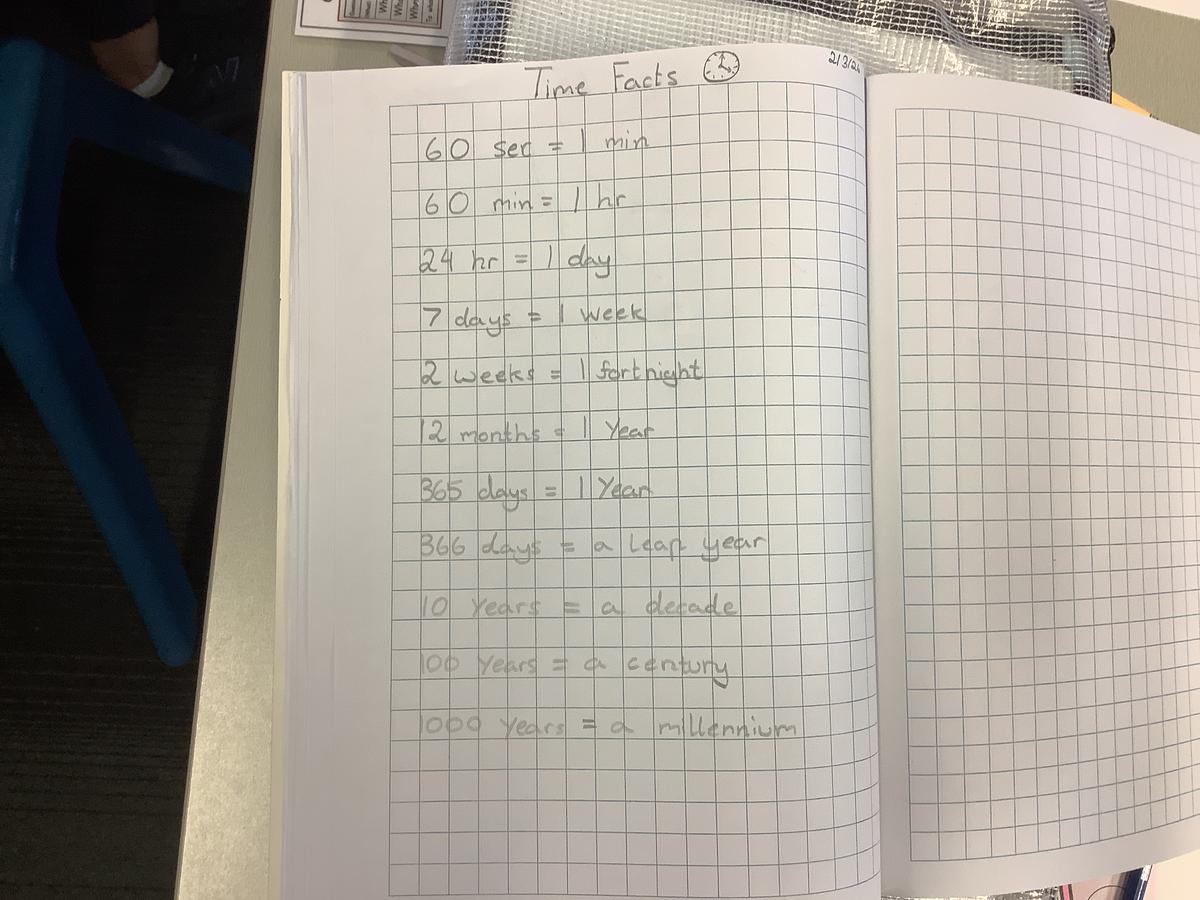 Time Facts
2/3/24
60 sec = 1 min
60 min = 1 hr
24 hr = 1 day
7 days = 1 week
2 weeks = 1 fortnight
12 months = 1 Year
365 days = 1 Year
366 days = a leap year
10 years = a decade
100 years = a century
1000 years = a millennium